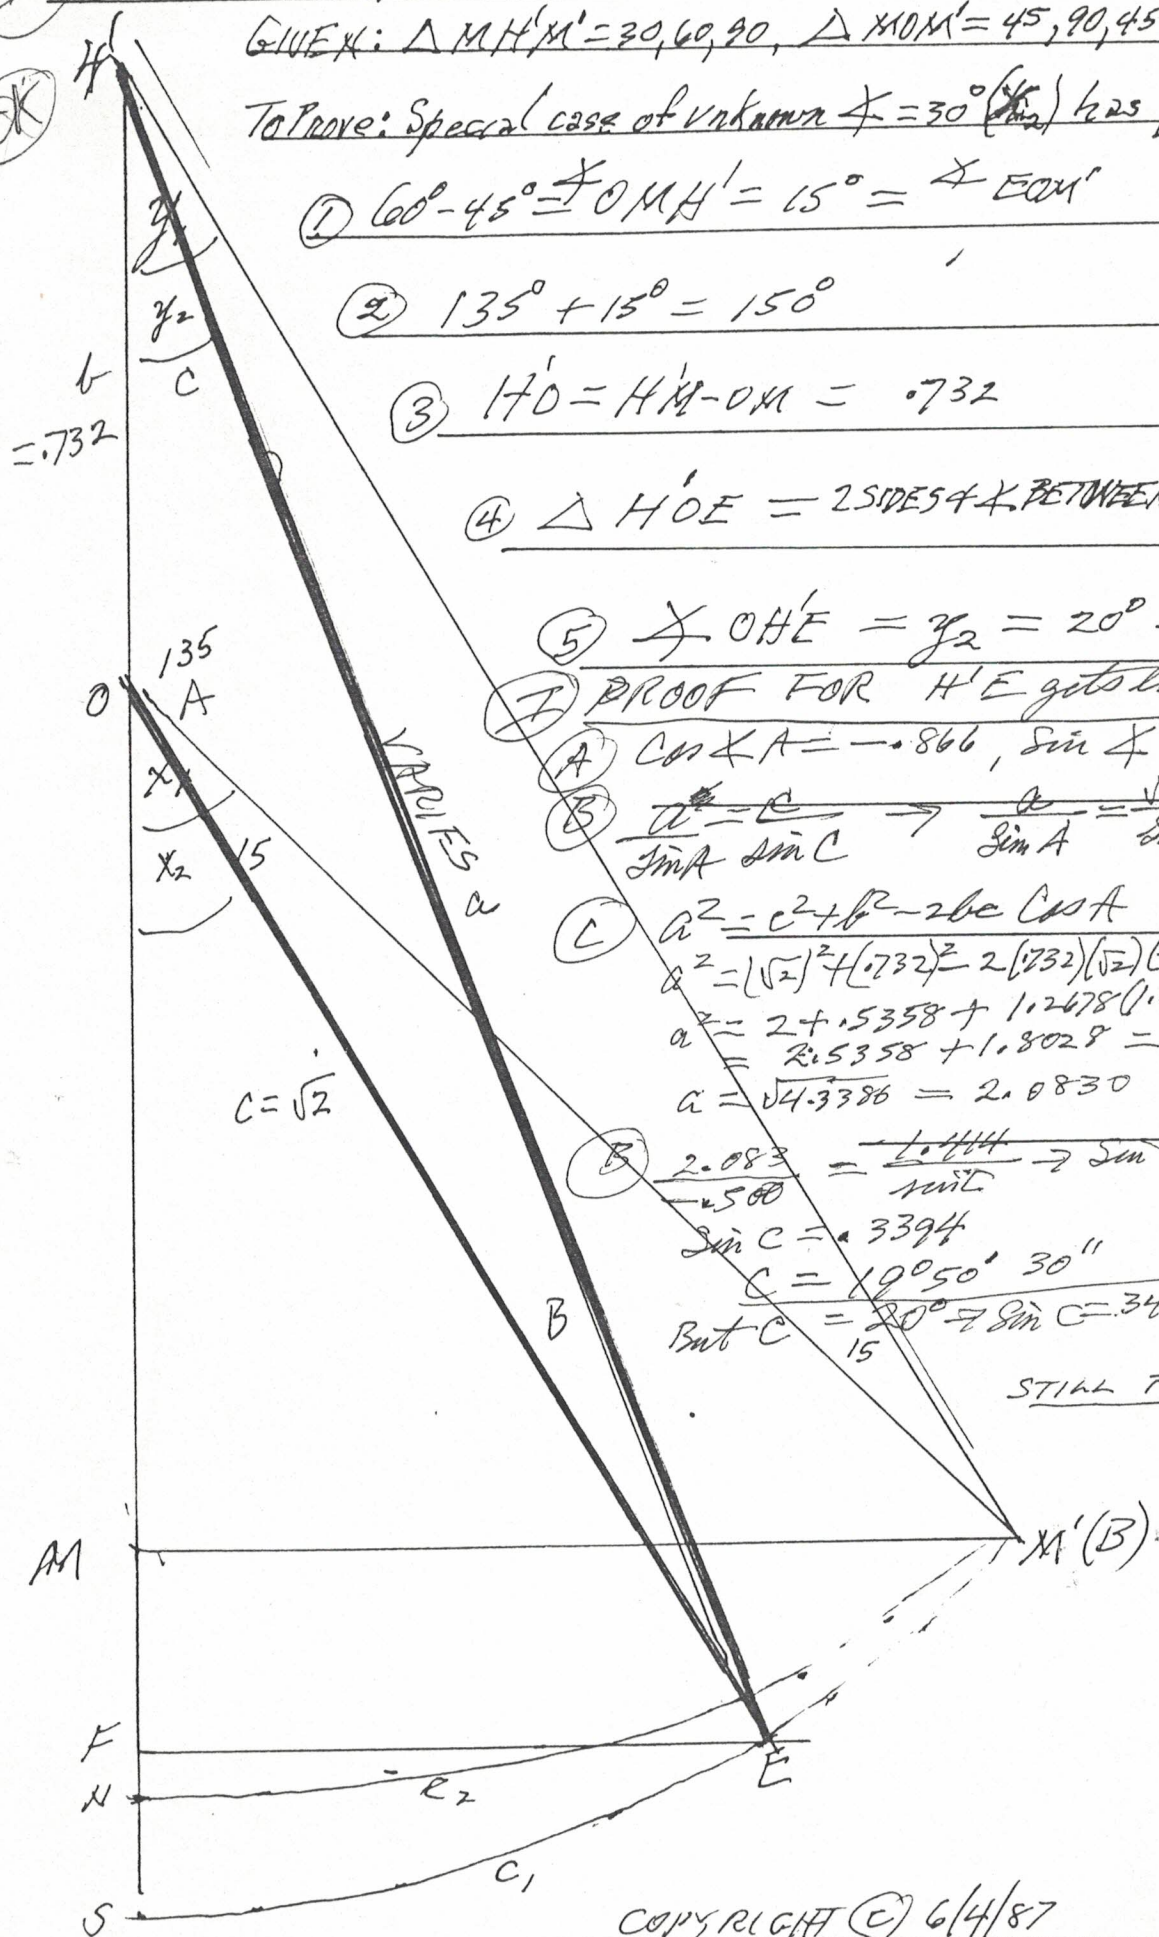 GIVEN: △ MH'M' = 30,60,90, △ MOM' = 45,90,45
To Prove: Special case of unknown ∡ = 30° has
① 60° - 45° = ∡ OMH' = 15° = ∡ EOM'
② 135° + 15° = 150°
③ H'O = H'M - OM = .732
④ △ H'OE = 2 SIDES & ∡ BETWEEN
⑤ ∡ OH'E = y₂ = 20°
Ⓘ PROOF FOR H'E gets
Ⓐ Cos ∡ A = -.866, Sin ∡
Ⓑ a/sin A = c/sin C → a/Sin A =
Ⓒ a² = c² + b² - 2bc Cos A
a² = (√2)² + (.732)² - 2(.732)(√2)(
a² = 2 + .5358 + 1.2678(1.
= 2.5358 + 1.8028 =
a = √4.3386 = 2.0830
Ⓑ 2.083/-.500 = 1.414/sin C → Sin
Sin C = .3394
C = 19° 50' 30"
But C = 20° → Sin C = .34
STILL
H'
y₁
y₂
C
b
= .732
135
O
A
x₁
15
x₂
VARIES
a
C = √2
B
15
M
M' (B)
F
E
N
C₂
C₁
S
COPYRIGHT © 6/4/87